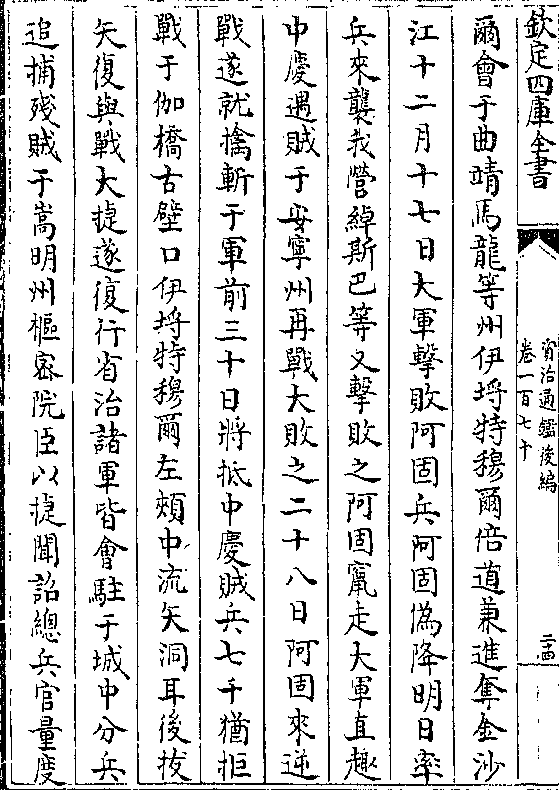 欽定四庫全書
資治通鑑後編
卷一百七十
爾會于曲靖馬龍等州伊埒特穆爾倍道兼進奪金沙
江十二月十七日大軍擊敗阿固兵阿固偽降明日率
兵來襲我營綽斯巴等又擊敗之阿固竄走大軍直趣
中慶遇賊于安寧州再戰大敗之二十八日阿固來逆
戰遂就擒斬于軍前三十日將抵中慶賊兵七千猶拒
戰于伽橋古壁口伊埒特穆爾左頰中流矢洞耳後拔
矢復與戰大捷遂復行省治諸軍皆會駐于城中分兵
追捕殘賊于嵩明州樞密院臣以捷聞詔總兵官量度